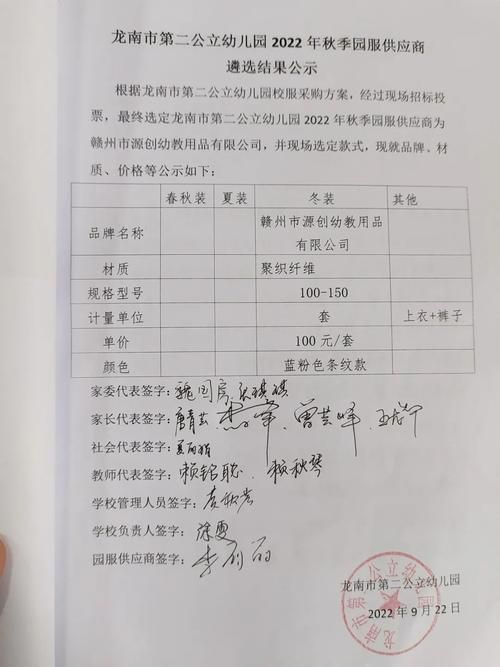 龙南市第二公立幼儿园 2022 年秋季园服供应商
遴选结果公示
根据龙南市第二公立幼儿园校服采购方案，经过现场招标投
票，最终选定龙南市第二公立幼儿园 2022 年秋季园服供应商为
赣州市源创幼教用品有限公司，并现场选定款式，现就品牌、材
质、价格等公示如下：
春秋装 夏装 冬装 其他
品牌名称 赣州市源创幼教用品
有限公司
材质 聚织纤维
规格型号 100-150
计量单位 套 上衣+裤子
单价 100 元/套
颜色 蓝粉色条纹款
家委代表签字：
家长代表签字：
社会代表签字：
教师代表签字：赖铭聪、赖秋琴
学校管理人员签字：
学校负责人签字：
园服供应商签字：
龙南市第二公立幼儿园
2022 年 9 月 22 日